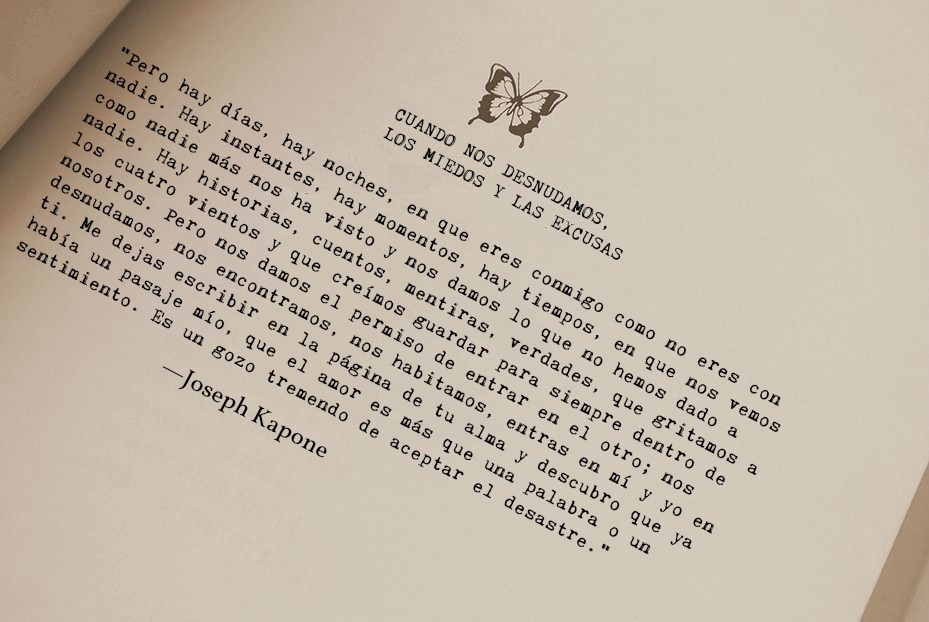 CUANDO NOS DESNUDAMOS,
LOS MIEDOS Y LAS EXCUSAS
"Pero hay días, hay noches, en que eres conmigo como no eres con
nadie. Hay instantes, hay momentos, hay tiempos, en que nos vemos
como nadie más nos ha visto y nos damos lo que no hemos dado a
nadie. Hay historias, cuentos, mentiras, verdades, que gritamos a
los cuatro vientos y que creímos guardar para siempre dentro de
nosotros. Pero nos damos el permiso de entrar en el otro; nos
desnudamos, nos encontramos, nos habitamos, entras en mí y yo en
ti. Me dejas escribir en la página de tu alma y descubro que ya
había un pasaje mío, que el amor es más que una palabra o un
sentimiento. Es un gozo tremendo de aceptar el desastre."
—Joseph Kapone